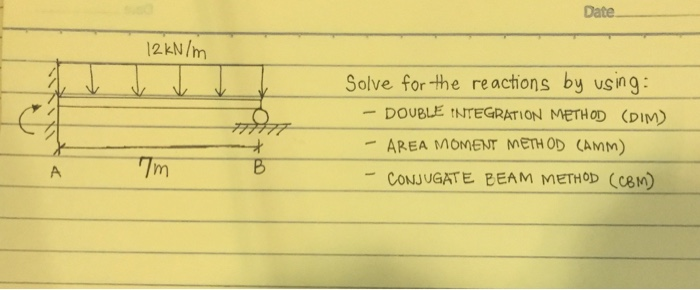 Date
12kN/m
Solve for the reactions by using:
- DOUBLE INTEGRATION METHOD (DIM)
- AREA MOMENT METHOD (AMM)
- CONJUGATE BEAM METHOD (CBM)
A 7m B